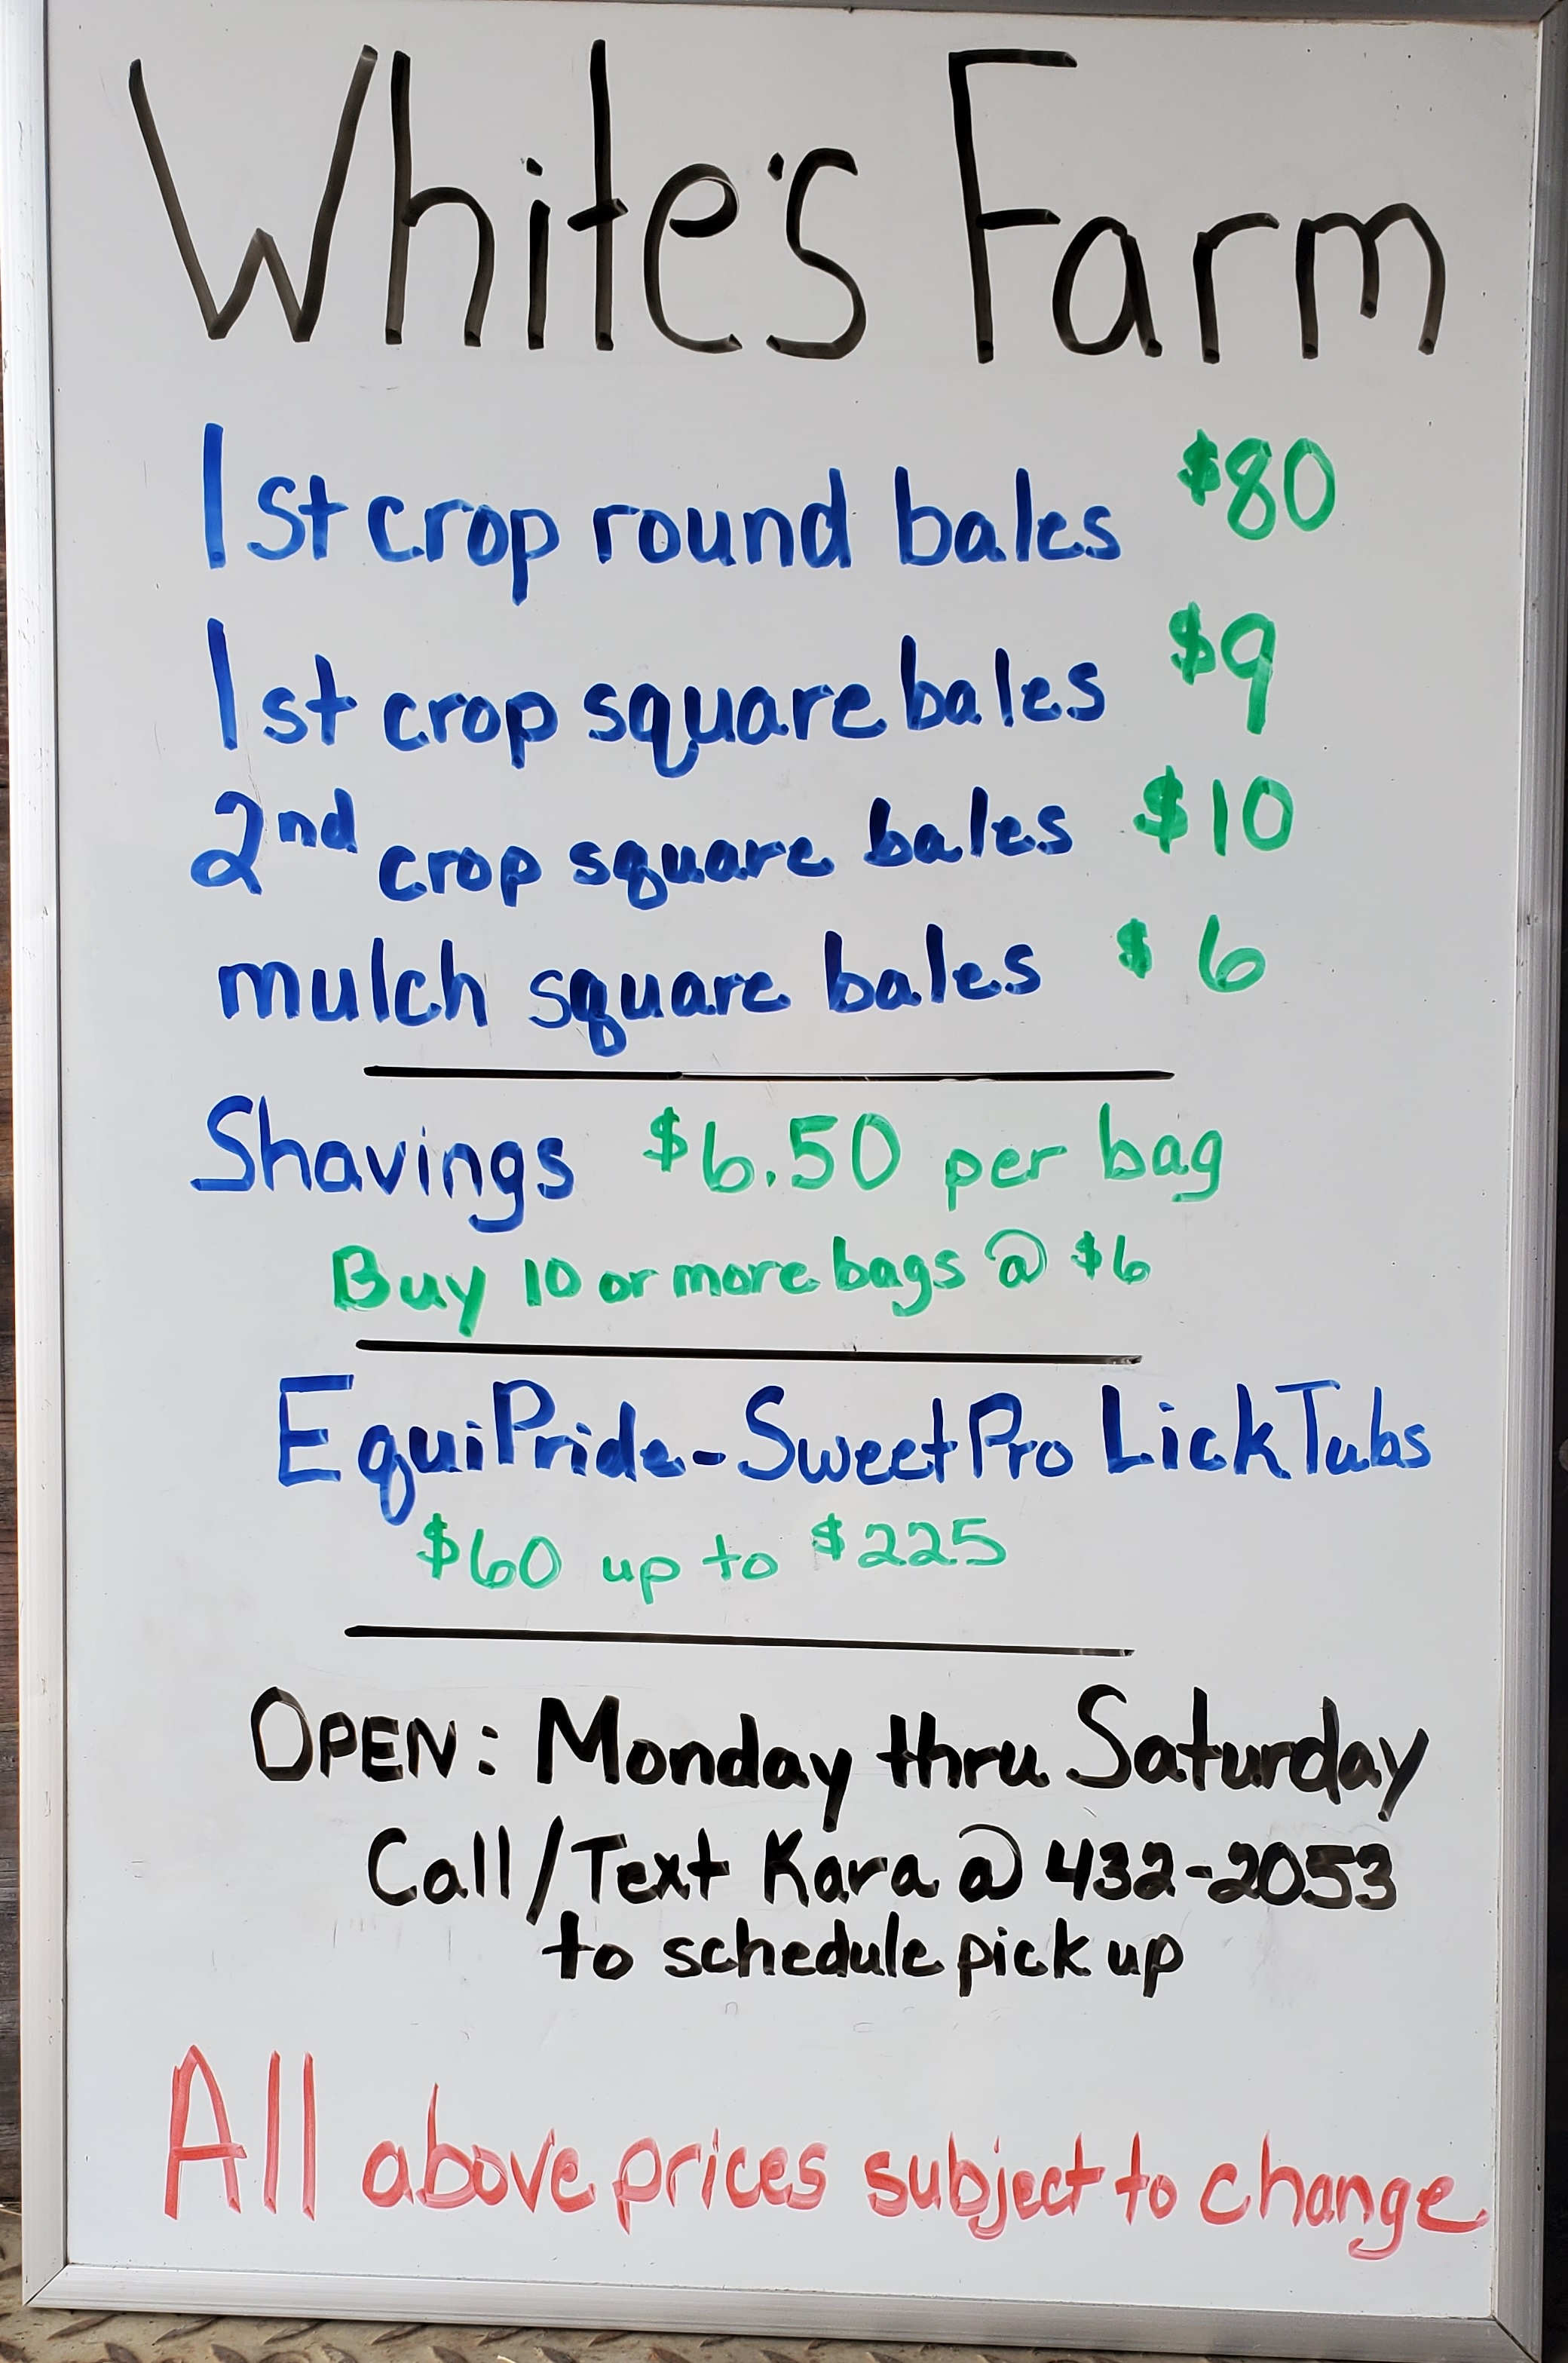 White's Farm
1st crop round bales $80
1st crop square bales $9
2nd crop square bales $10
mulch square bales $6
Shavings $6.50 per bag
Buy 10 or more bags @ $6
EquiPride-SweetPro Lick Tubs
$60 up to $225
OPEN: Monday thru Saturday
Call/Text Kara @ 432-2053
to schedule pick up
All above prices subject to change